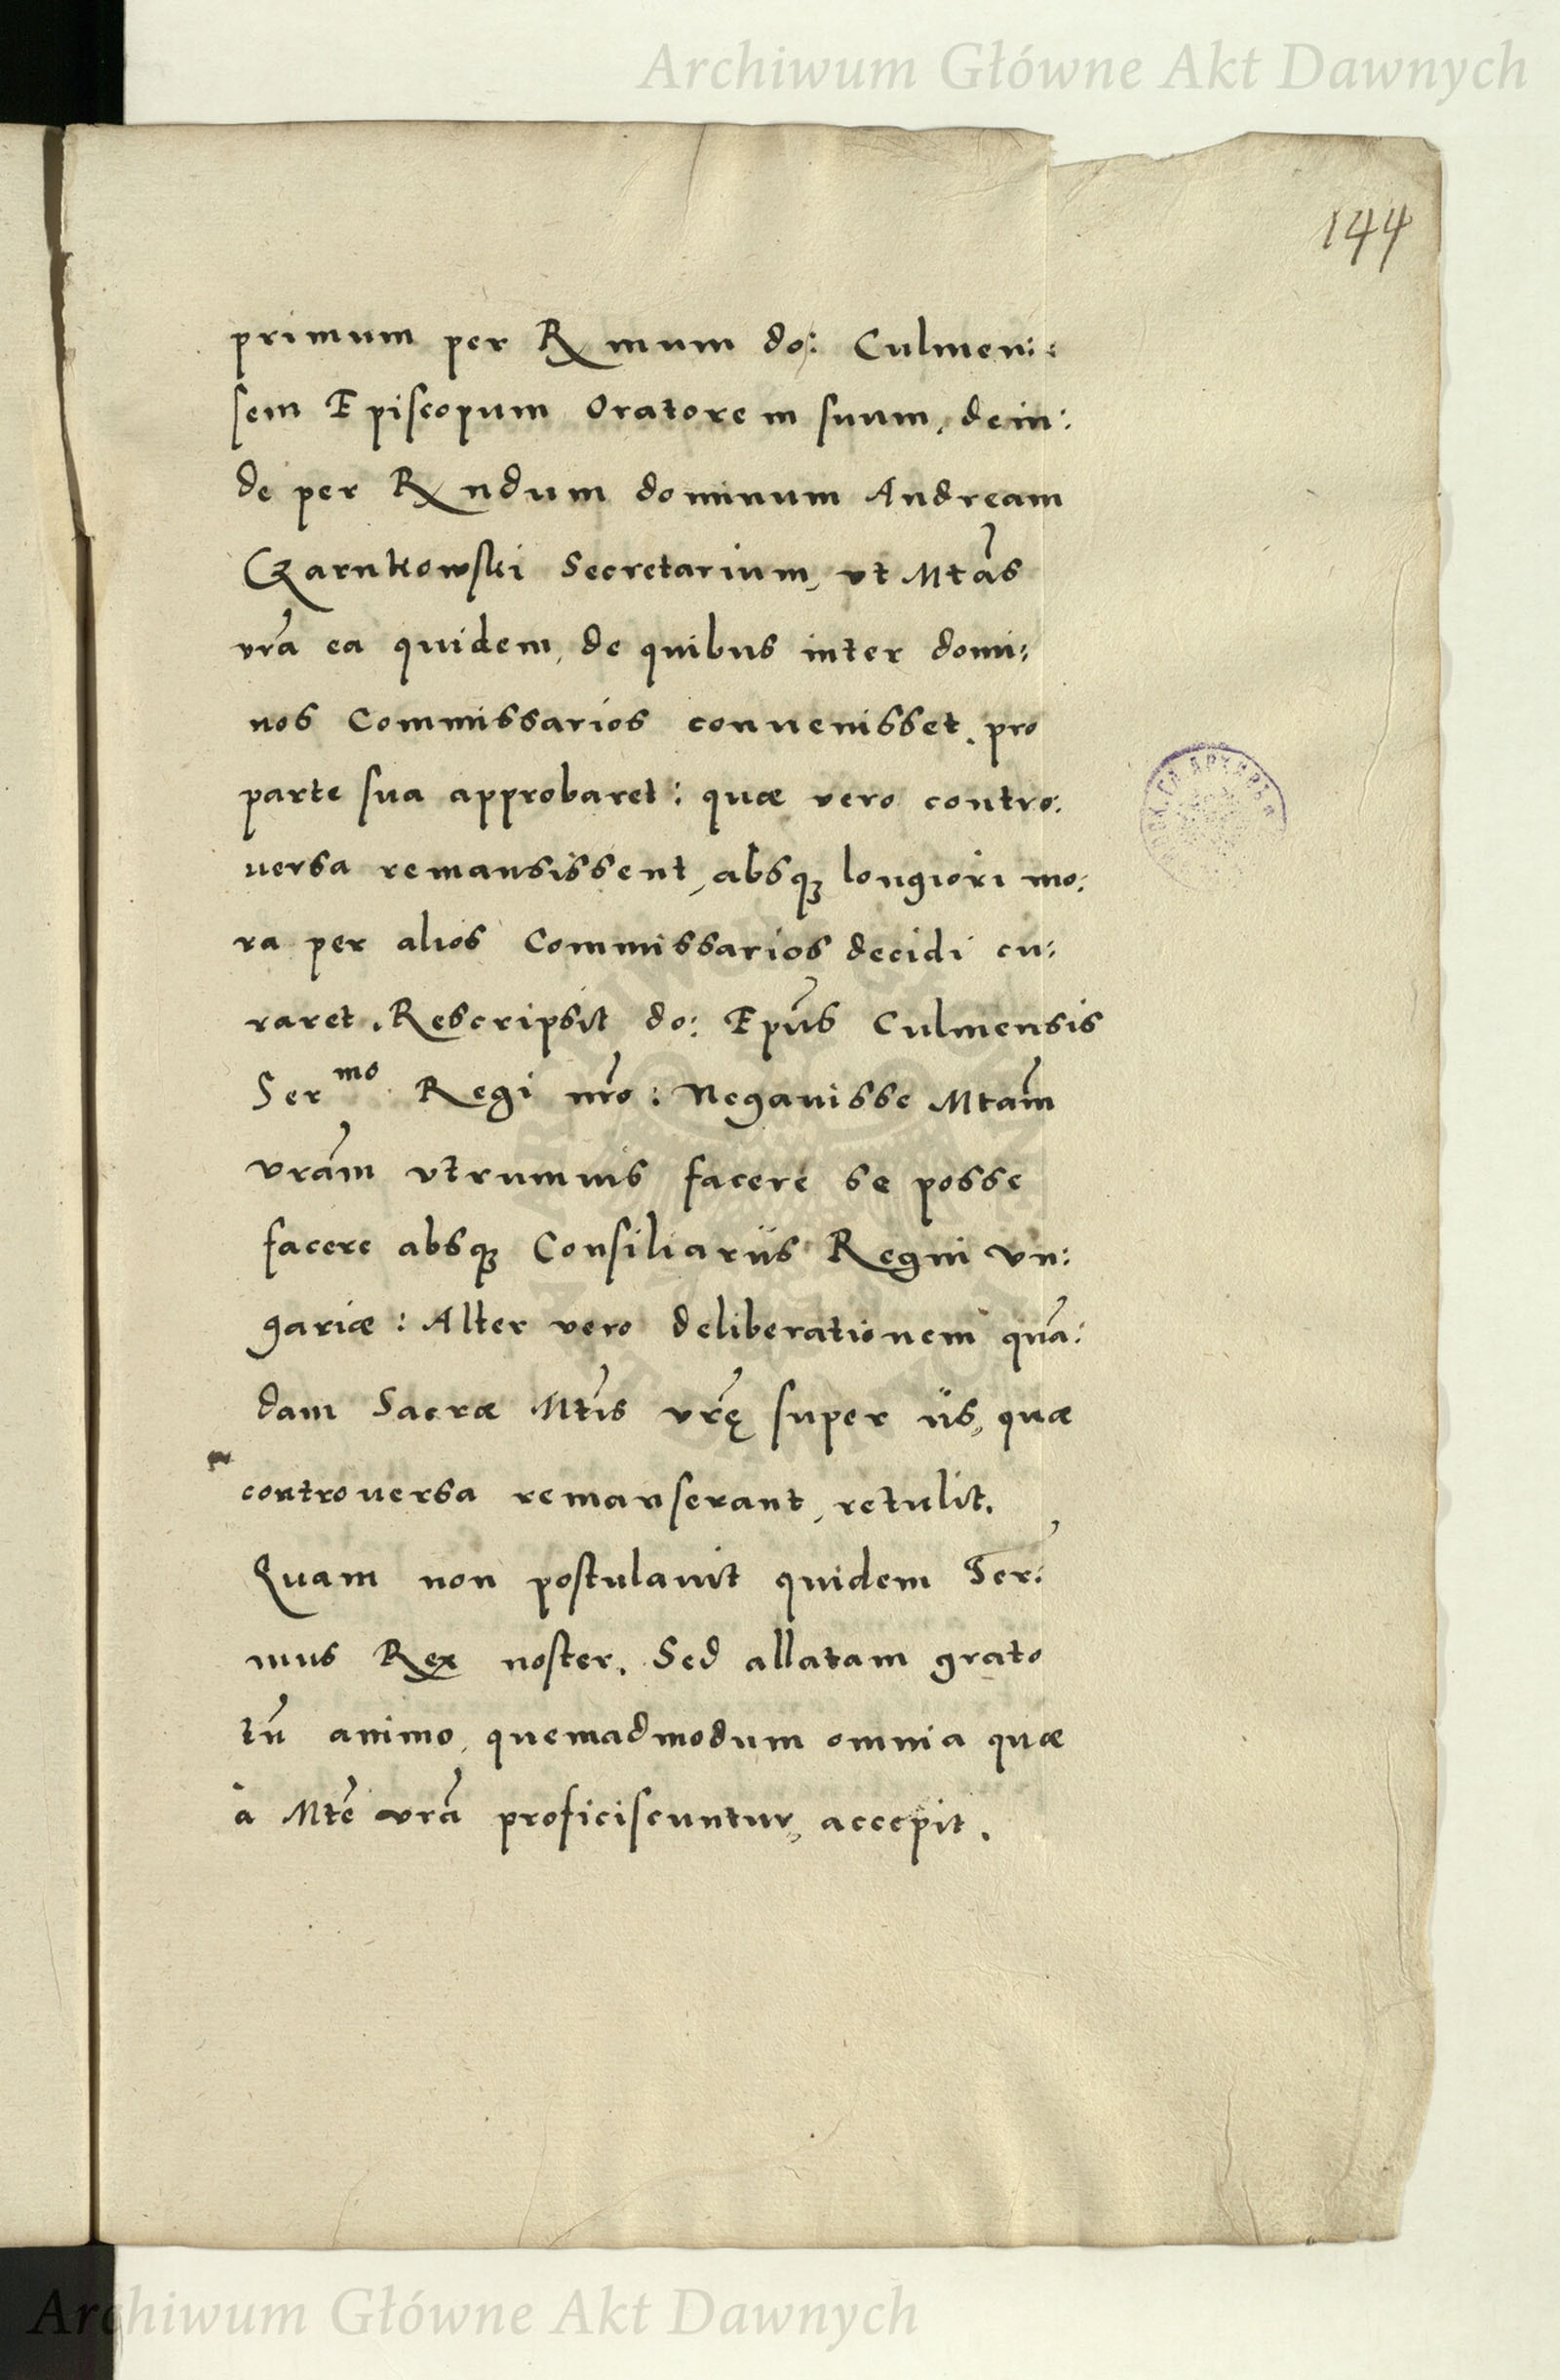 Archiwum Główne Akt Dawnych
144
primum per Rmum do: Culmen:
sem Episcopum Oratorem suum, dein:
de per Rndum dominum Andream
Czarnkowski Secretarium, vt Mtas
vra ea quidem, de quibus inter domi:
nos Commissarios conuenisset, pro
parte sua approbaret: quæ vero contro:
uersa remansissent, absq; longiori mo:
ra per alios Commissarios decidi cu:
raret. Rescripsit do: Epus Culmensis
Sermo Regi nro: Negauisse Mtam
vram vtrumuis facere se posse
facere absq; Consiliariis Regni Vn:
gariæ: Alter vero deliberationem quan:
dam Sacræ Mtis vrę super iis, quæ
controuersa remanserant, retulit.
Quam non postulauit quidem Ser:
mus Rex noster. Sed allatam grato
tn animo, quemadmodum omnia quæ
à Mte vra proficiscuntur, accepit.
Archiwum Główne Akt Dawnych